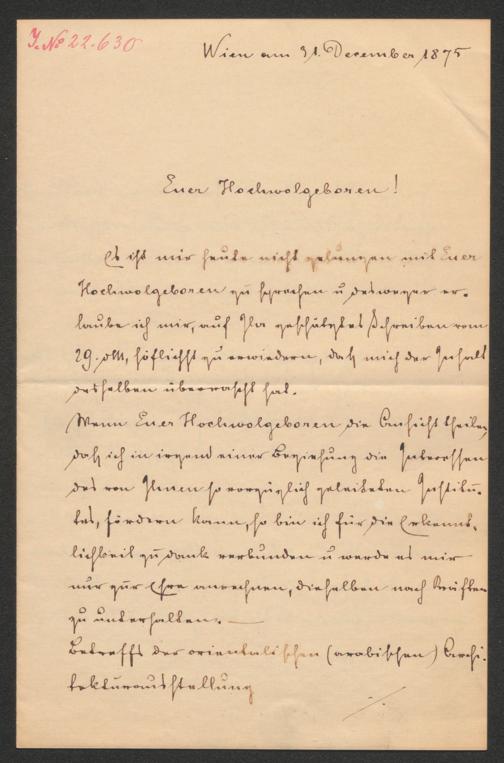 J. No 22.630
Wien am 31. December 1875
Euer Hochwolgeboren!
Es ist mir heute nicht gelungen mit Euer
Hochwolgeboren zu sprechen u deswegen er-
laube ich mir, auf Ihr geschätztes Schreiben vom
29. dM, höflichst zu erwiedern, daß mich der Inhalt
desselben überrascht hat.
Wenn Euer Hochwolgeboren die Ansicht theilen,
daß ich in irgend einer Beziehung die Interessen
des von Ihnen so vorzüglich geleiteten Institu-
tes, fördern kann, so bin ich für die Erkennt-
lichkeit zu dank verbunden u werde es mir
nur zur Ehre anrechnen, dieselben nach Kräften
zu unterhalten. —
Betreffs der orientalischen (arabischen) Archi-
tekturausstellung
./.